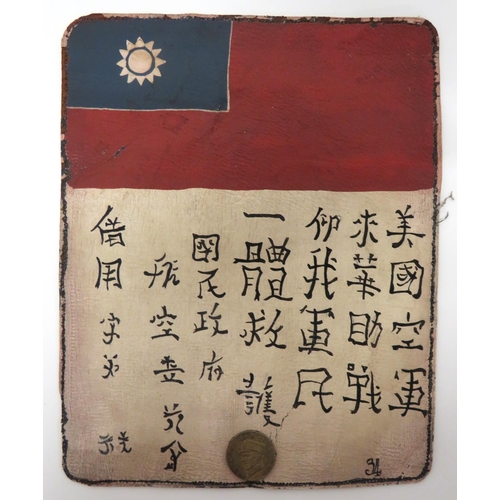 美國空軍
来華助戰
仰我軍民
一體救護
國民政府
航空委
借用 字第 號
34